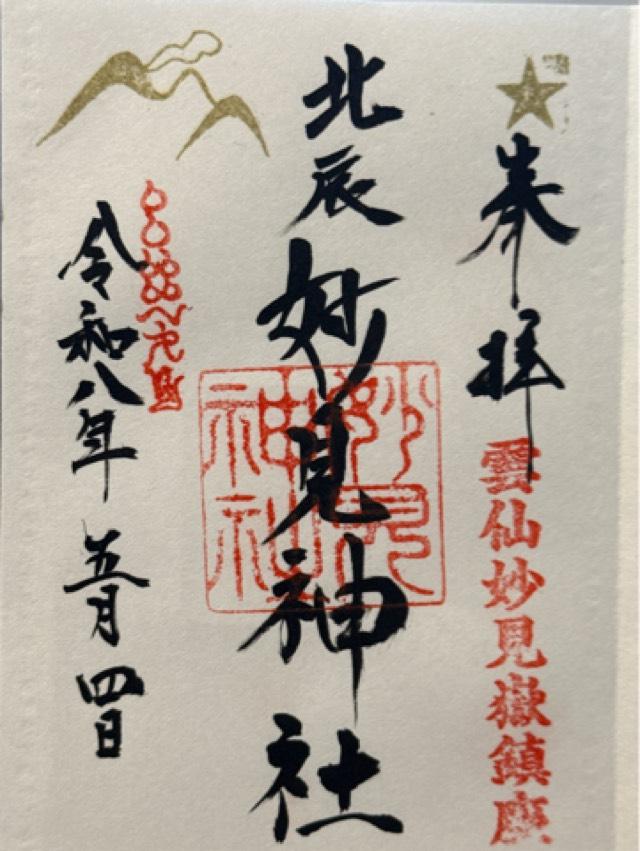 奉拝
雲仙妙見嶽鎮座
北辰妙見神社
妙見
神社
令和八年五月四日